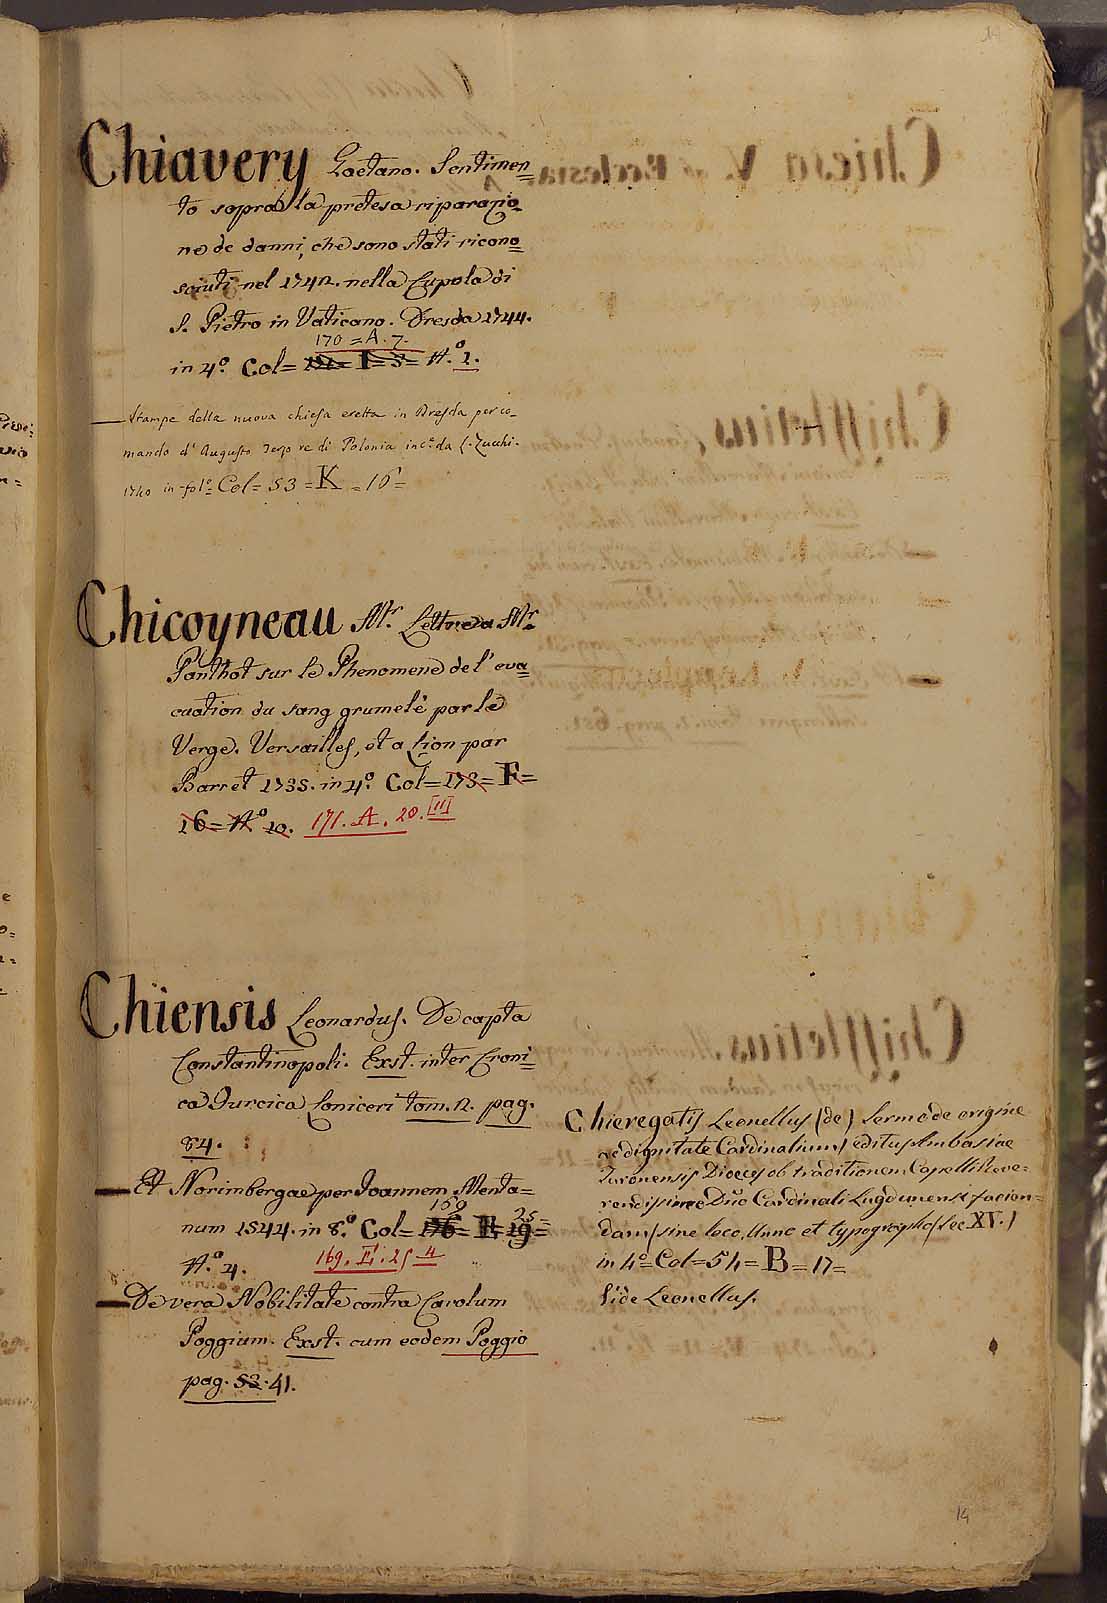 14
Chiavery Gaetano. Sentimen=
to sopra la pretesa riparazio=
ne de danni, che sono stati ricono=
sciuti nel 1742. nella Cupola di
S. Pietro in Vaticano. Dresda 1744.
170 = A. 7.
in 4.º Col= I= 8= N.º 1.
— Stampe della nuova chiesa eretta in Dresda per co=
mando d'Augusto Terzo re di Polonia inc.e da L. Zucchi.
1740 in folº= Col= 53 = K = 16=
Chicoyneau Mr. Lettre a Mr.
Panthot sur le Phenomene de l'eva=
cuation du sang grumelé par le
Verge. Versailles, et a Lion par
Barret 1735. in 4.º Col= 173= F=
16= N.º 10. 171. A. 20. [11]
Chiensis Leonardus. De capta
Constantinopoli. Exst. inter Croni=
ca Turcica Loniceri tom. 2. pag.
84.
— Et Norimbergae per Joannem Monta=
num 1544. in 8.º Col= 176= 19=
169 25
N.º 4. 169. E. 25 4
— De vera Nobilitate contra Carolum
Poggium. Exst. cum eodem Poggio
pag. 53. 41.
Chieregatis Leonellus (de) Sermo de origine
ac dignitate Cardinalium editus Ambasiae
Turonensis Dioeces ob traditionem Capelli Reve=
rendissimo Dño Cardinali Lugdunensi facien=
dam (sine loco, Anno et typographo sec XV.)
in 4º= Col= 54= B= 17=
Vide Leonellus.
14